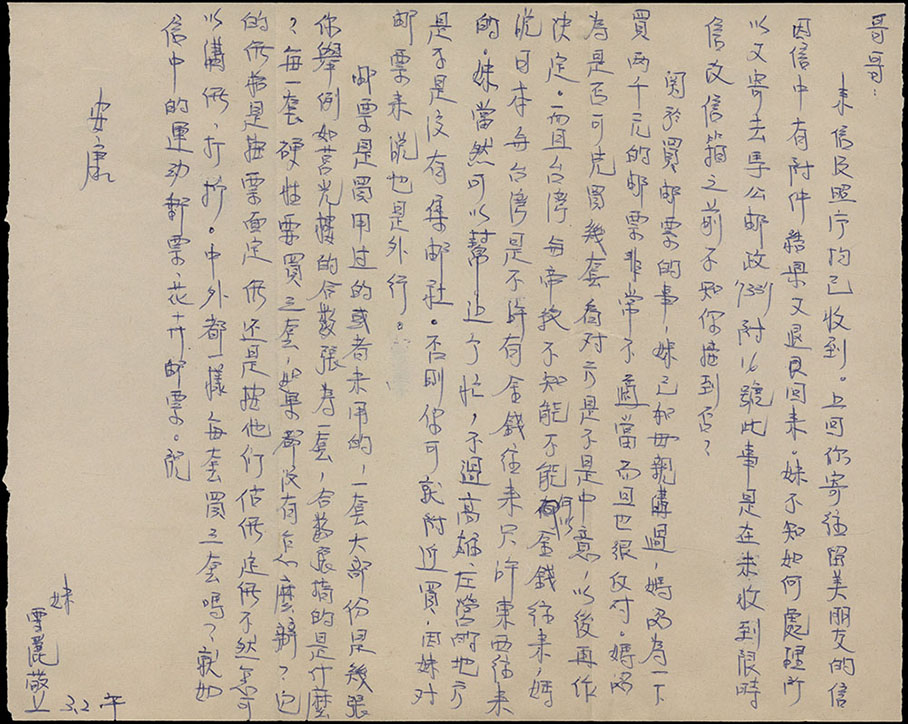 哥哥：
來信及照片均已收到。上回你寄往留美朋友的信
因信中有附件結果又退回來。妹不知如何處理所
以又寄去馬公郵政7331附16號此事是在未收到限時
信改信箱之前不知你接到否？
関於買邮票的事，妹已和母親講過，媽媽為一下
買兩千元的邮票非常不適當而且也很 。媽媽
為是否可先買幾套看对方是不是中意，以後再作
決定。而且台湾与帝 不知能不能有金錢往來，媽
說日本与台湾是不許有金錢往來只許東西往來
的。妹當然可以幫這个忙，不過高雄、左營的地方
是不是沒有集邮社。否則你可就附近買，因妹对
邮票來說也是外行。
邮票是買用过的或者未用的，一套大部份是幾張
你舉例如莒光樓的合数張為一套，合数張指的是什麼
？每一套硬性要買三套，如果都沒有怎麼辦？它
的価格是按票面定価还是按他们估価定価不然怎可
以講価，打折。中外都一樣每套買三套嗎？就如
信中的運动郵票、花卉邮票。祝
安康
妹
雪麗敬上
3.2午